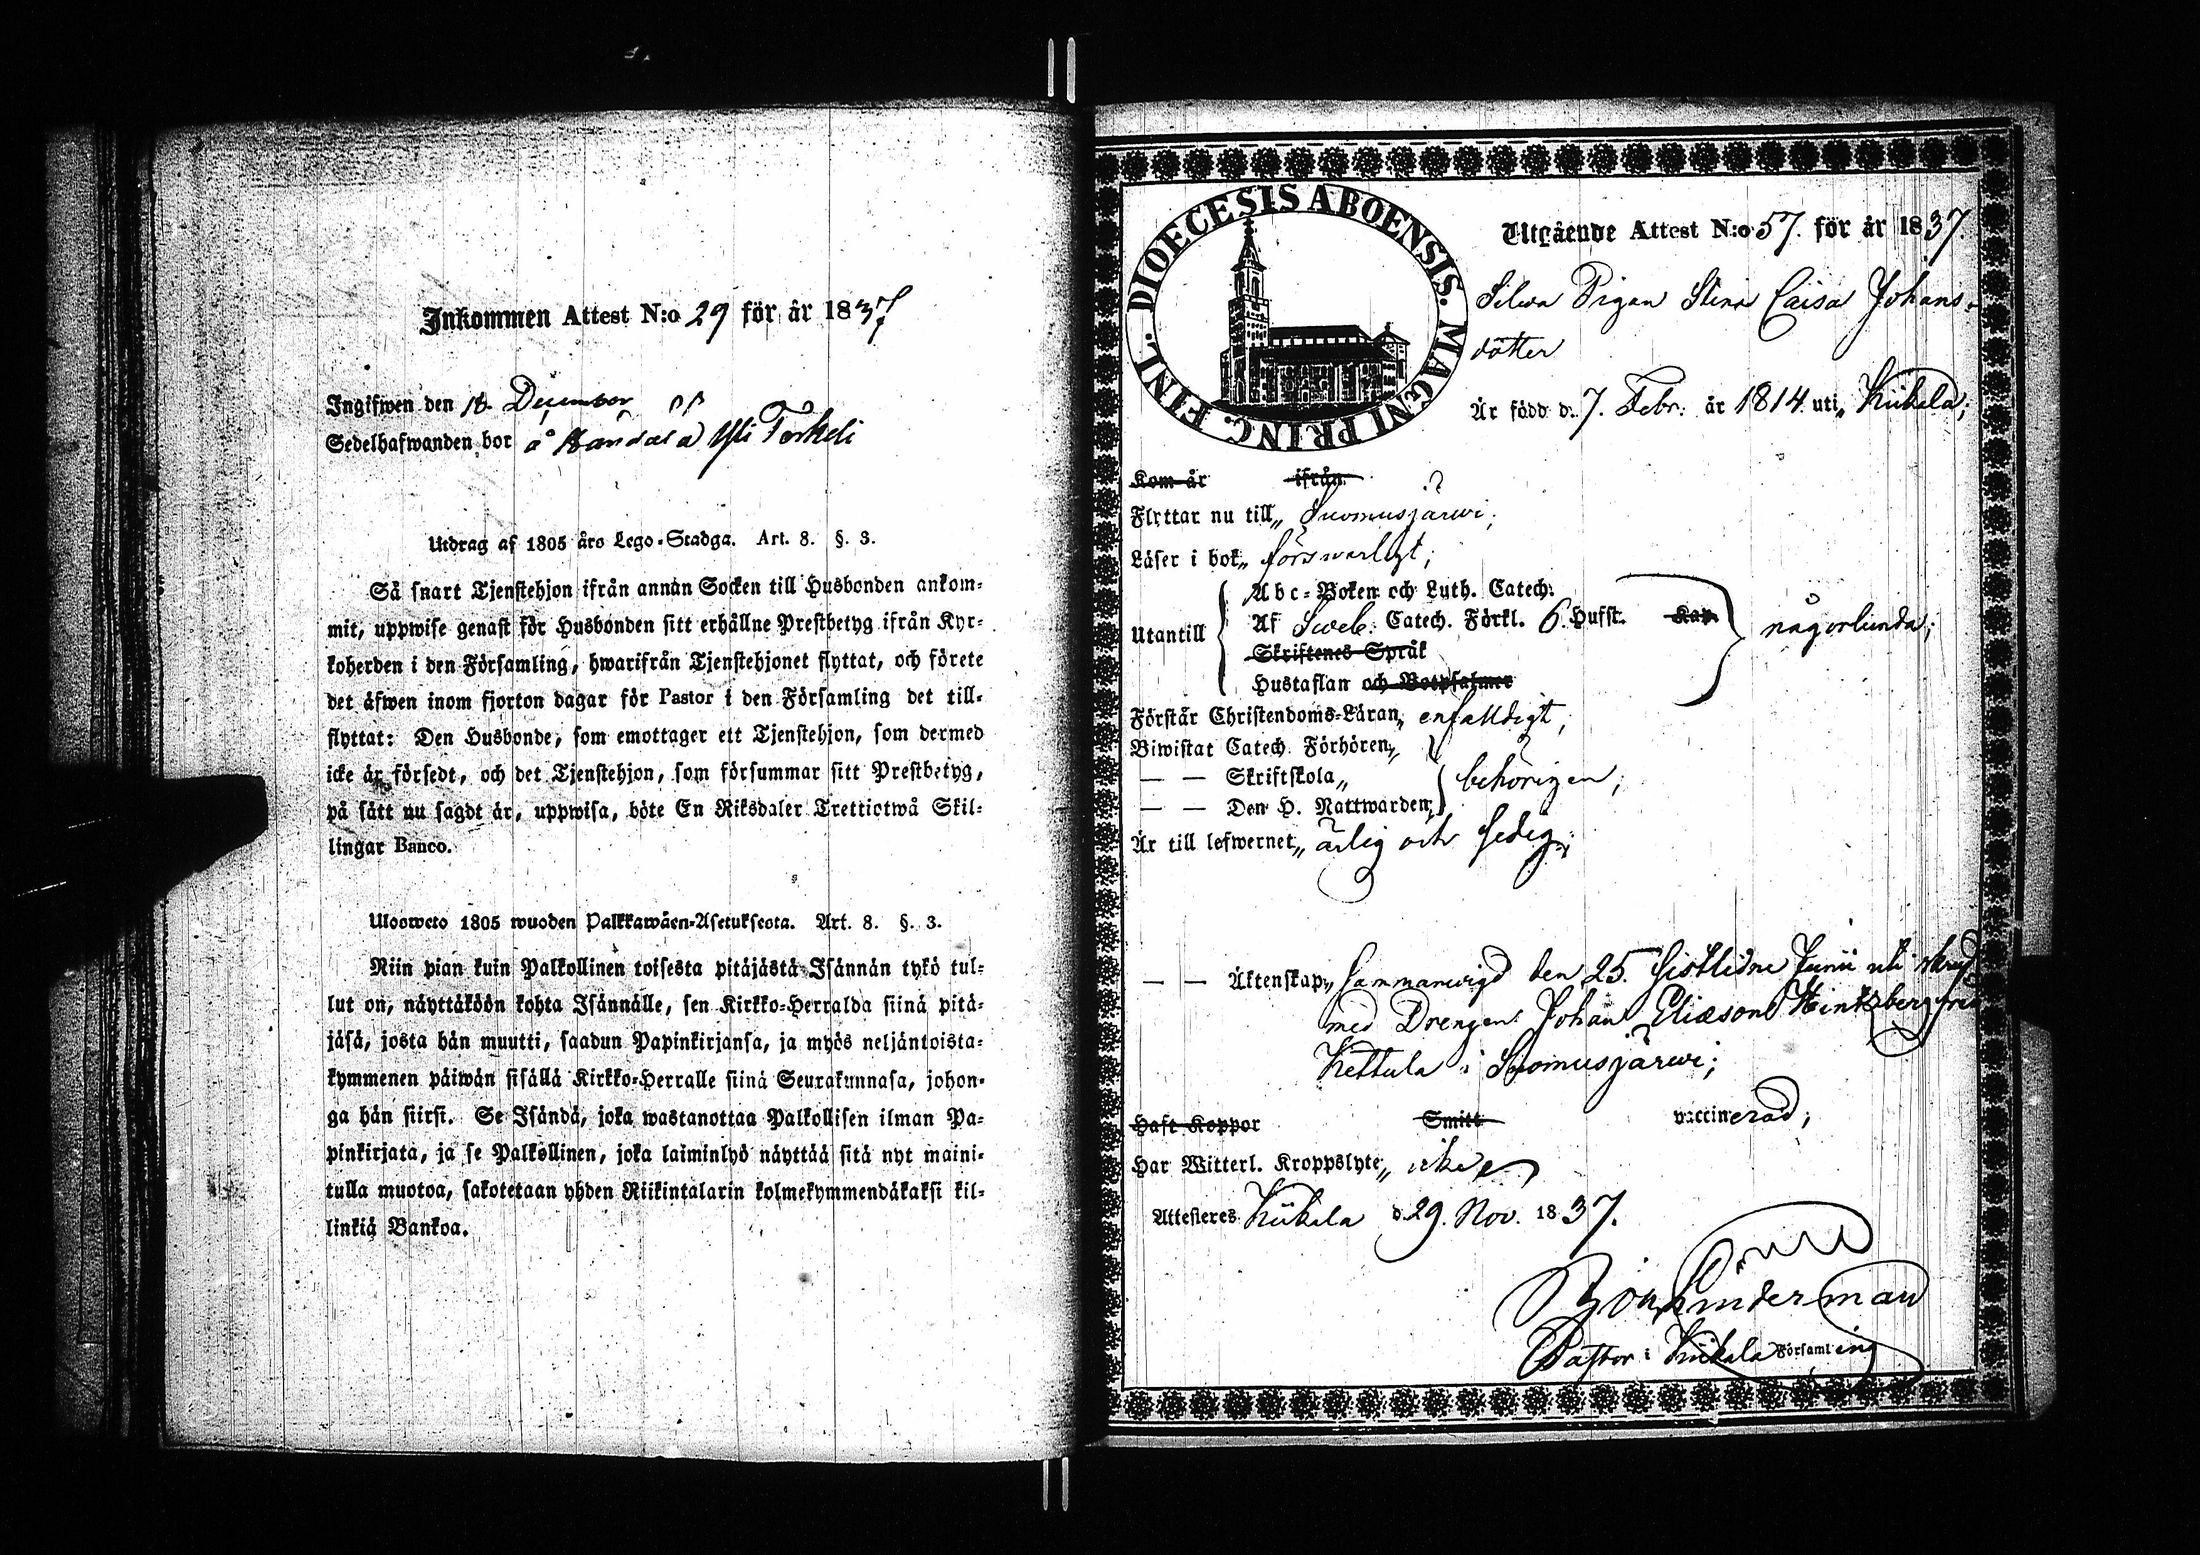 Inkommen Attest N:o 29 för år 1837
Ingifwen den 18 December
Sedelhafwanden bor å Yli Torkeli
Utdrag af 1805 års Lego-Stadga. Art. 8. §. 3.
Så snart Tjenstehjon ifrån annan Socken till Husbonden ankom-
mit, uppwise genast för Husbonden sitt erhållne Prestbetyg ifrån Kyr-
koherden i den Församling, hwarifrån Tjenstehjonet flyttat, och förete
det äfwen inom fjorton dagar för Pastor i den Församling det till-
flyttat: Den Husbonde, som emottager ett Tjenstehjon, som dermed
icke är försedt, och det Tjenstehjon, som försummar sitt Prestbetyg,
på sätt nu sagdt är, uppwisa, böte En Riksdaler Trettiotwå Skil-
lingar Banco.
Ulosweto 1805 wuoden Palkkawäen-Asetuksesta. Art. 8. §. 3.
Niin pian kuin Palkollinen toisesta pitäjästä Isännän tykö tul-
lut on, näyttäköön kohta Isännälle, sen Kirkko-Herralda siinä pitä-
jäsä, josta hän muutti, saadun Papinkirjansa, ja myös neljäntoista-
kymmenen päiwän sisällä Kirkko-Herralle siinä Seurakunnasa, johon-
ga hän siirsi. Se Isändä, joka wastanottaa Palkollisen ilman Pa-
pinkirjata, ja se Palkollinen, joka laiminlyö näyttää sitä nyt maini-
tulla muotoa, sakotetaan yhden Riikintalarin kolmekymmendäkaksi kil-
linkiä Bankoa.
DIOECESIS ABOENSIS. MAGNI PRINC. FINL.
Utgående Attest N:o 57. för år 1837.
Pigan Stina Caisa Johans-
dotter
Är född d. 7. Febr. år 1814 uti Kiikala;
Kom år ifrån
Flyttar nu till Suomusjärwi;
Läser i bok försvarligt;
Utantill
Abc-Boken och Luth. Catech.
Af Sweb. Catech. Förkl. 6. Hufst. Kap. någorlunda;
Skriftenes Språk
Hustaflan och Botpsalmer
Förstår Christendoms-Läran enfaldigt;
Biwistat Catech. Förhören
— — Skriftskola behörigen;
— — Den H. Nattwarden
Är till lefwernet ärlig och sedig;
— — Äktenskap Sammanvigd den 25. sistlidne Junii uti
med Drengen Johan Eliæson Hintzberg från
Kettula i Suomusjärwi;
Haft Koppor Smitt vaccinerad;
Har Witterl. Kroppslyte icke
Attesteres Kiikala d. 29. Nov. 1837.
Pastor i Kiikala Församling